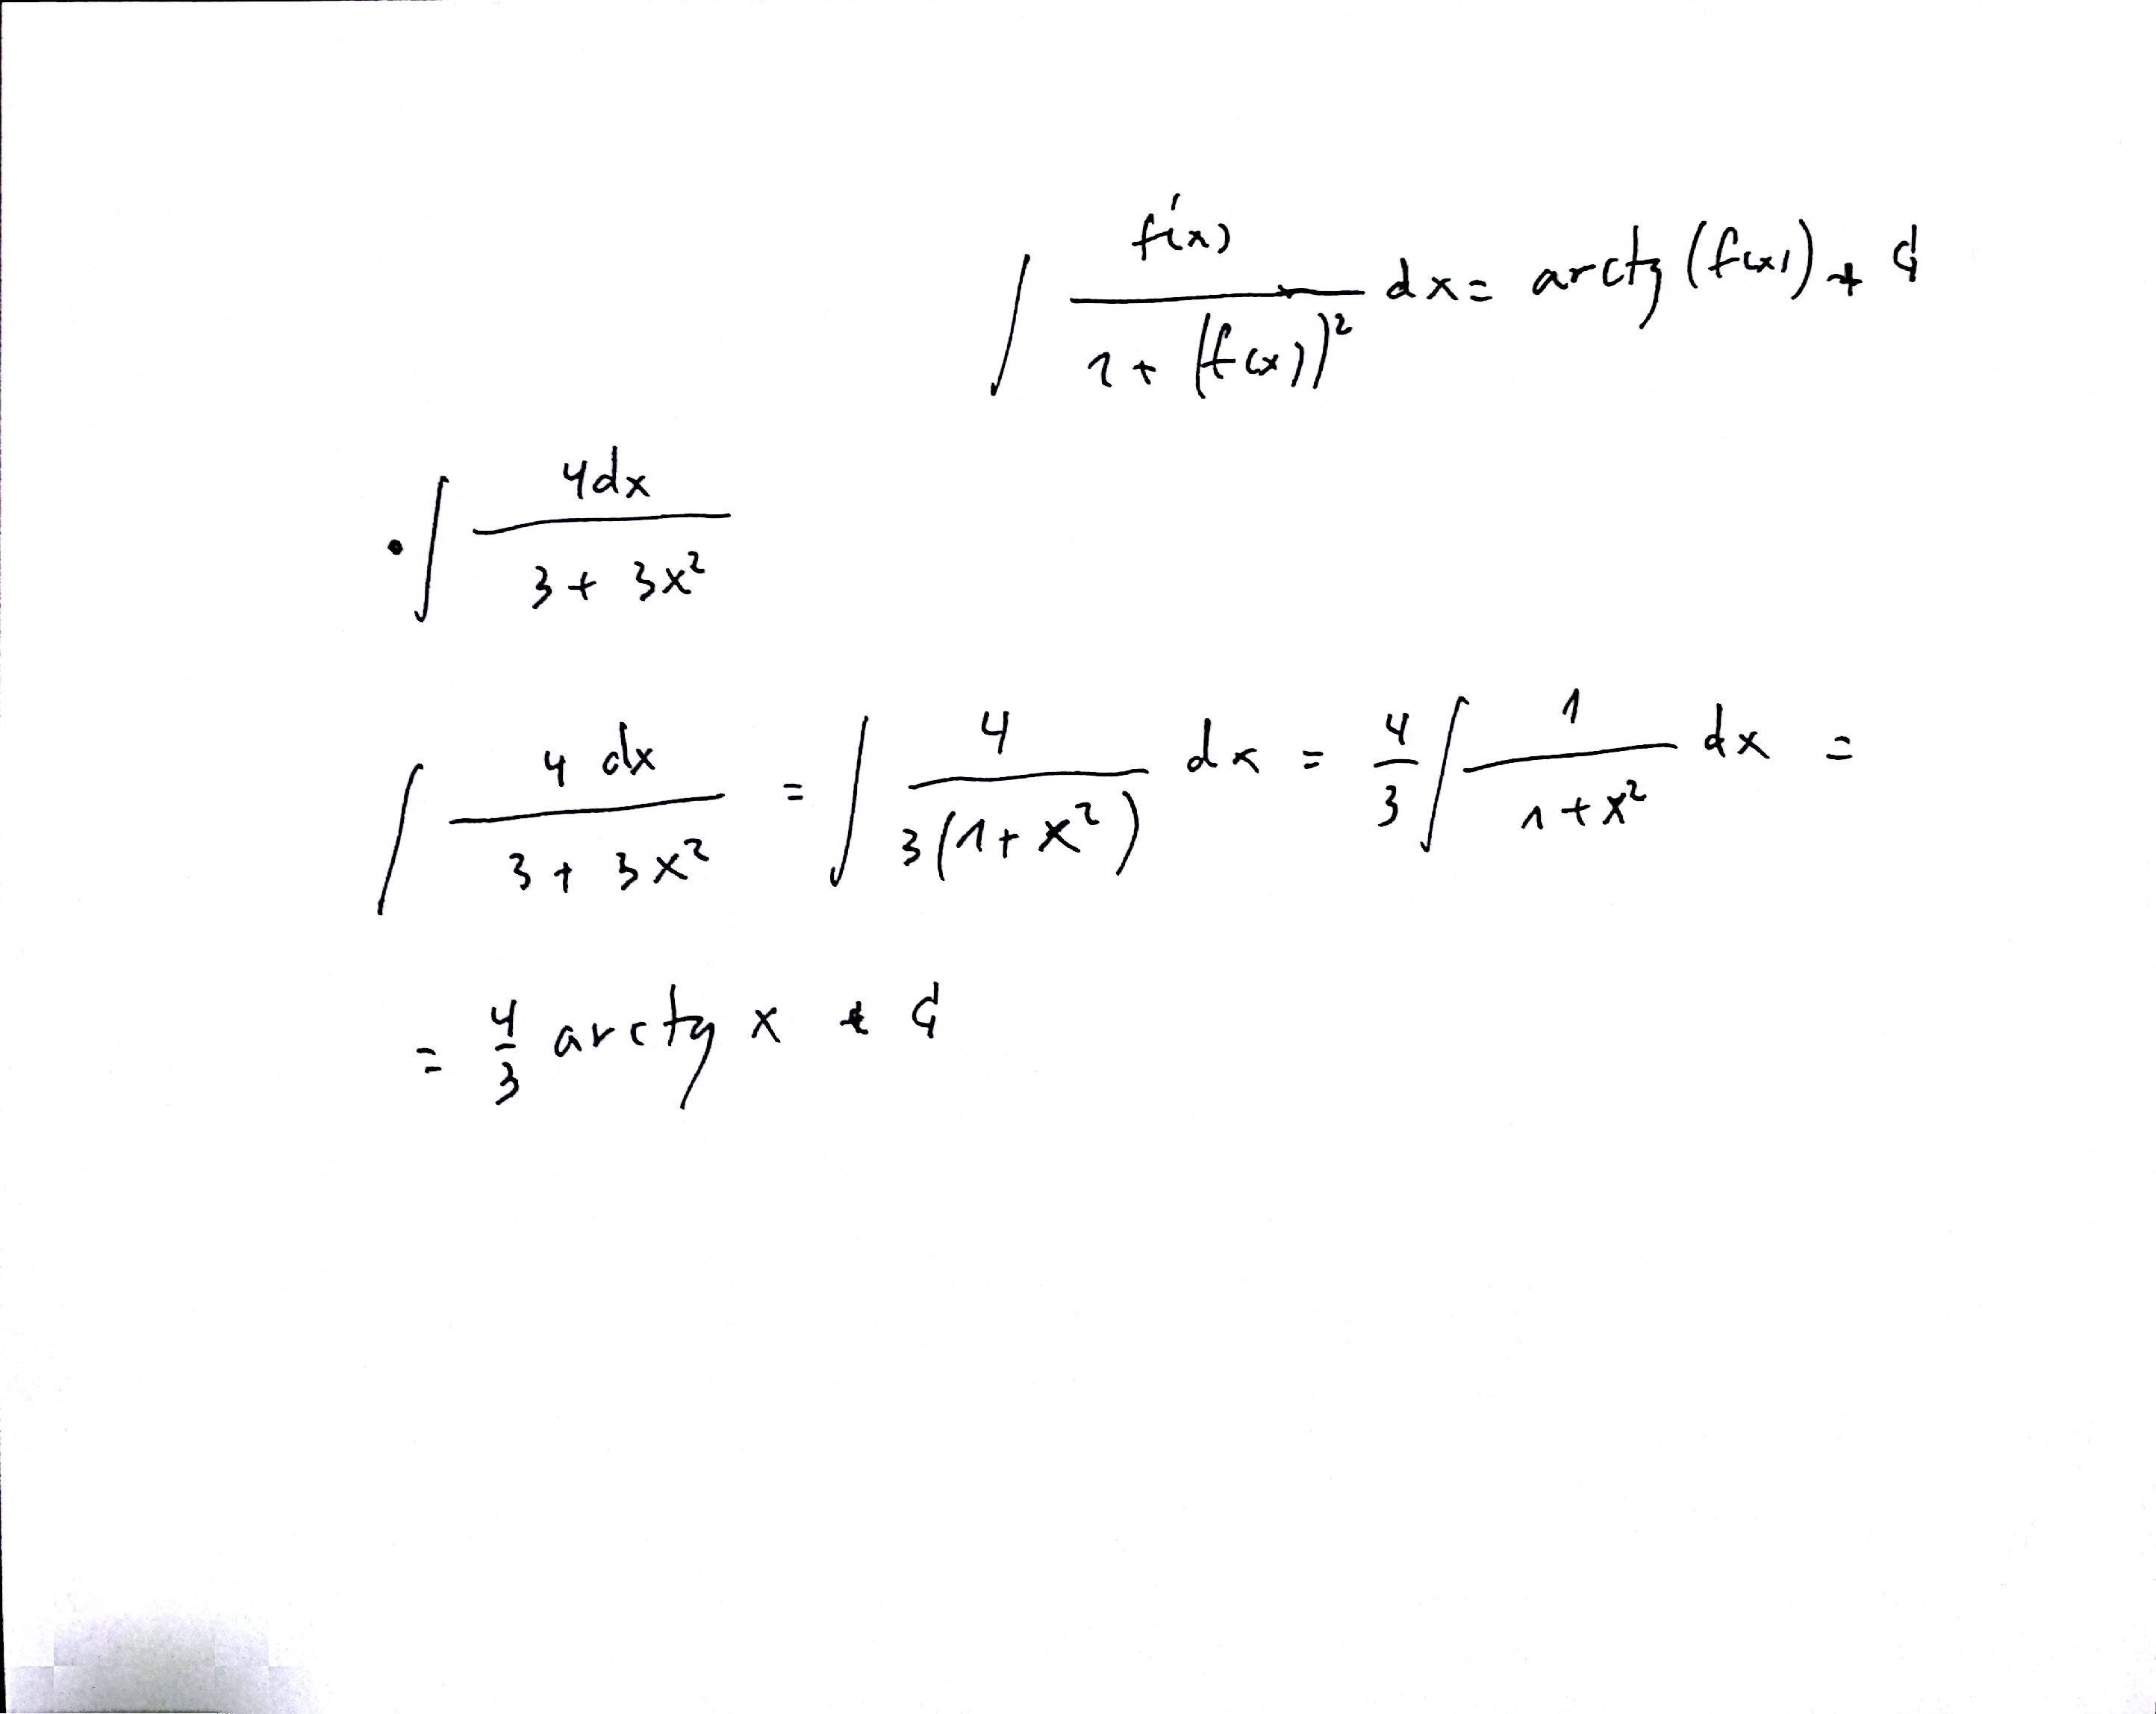 ∫ f'(x) / (1 + (f(x))²) dx = arctg (f(x)) + C
• ∫ 4dx / (3 + 3x²)
∫ 4 dx / (3 + 3x²) = ∫ 4 / (3(1 + x²)) dx = 4/3 ∫ 1 / (1 + x²) dx =
= 4/3 arctg x + C